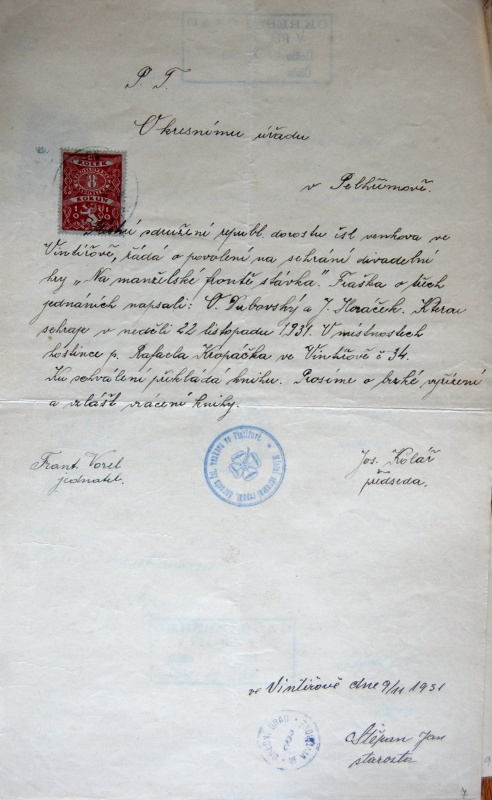 P. T.
Okresnímu úřadu
v Pelhřimově.
KOLEK
8
KORUN
Místní sdružení republ. dorostu čsl. venkova ve
Vintířově, žádá o povolení na sehrání divadelní
hry „Na manželské frontě stávka". Fraška o třech
jednáních napsali: O. Dubovský a J. Horáček. Kterou
sehraje v neděli 22 listopadu 1931. V místnostech
hostince p. Rafaela Kropáčka ve Vintířově č 34.
Ku schválení přikládá knihu. Prosíme o brzké vyřízení
a zvlášť vrácení knihy.
Frant. Vorel
jednatel.
Jos. Kolář
předseda.
ve Vintířově dne 9/11 1931
Štěpán Jan
starosta